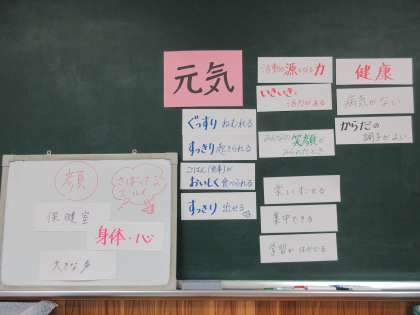 元気
ぐっすり ねむれる
すっきり 起きられる
ごはん(食事)が
おいしく 食べられる
すっきり 出せる
活動の源になる力
いきいきと
活力がある
みんなの 笑顔が
みられたとき
楽しくすごせる
集中できる
学習がはかどる
健康
病気がない
からだの
調子がよい
顔
保健室
身体・心
大きな声